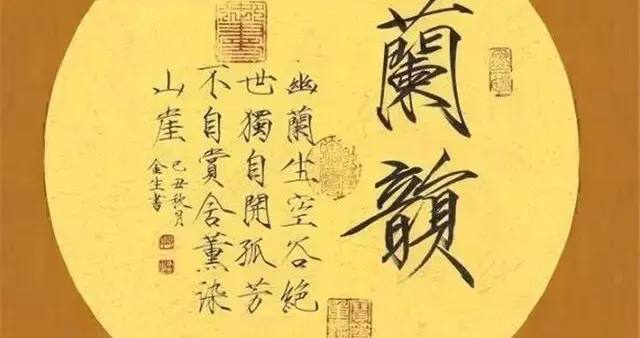 蘭韻
幽蘭生空谷絕
世獨自開孤芳
不自賞舍薰染
山崖
己丑秋月
金生書